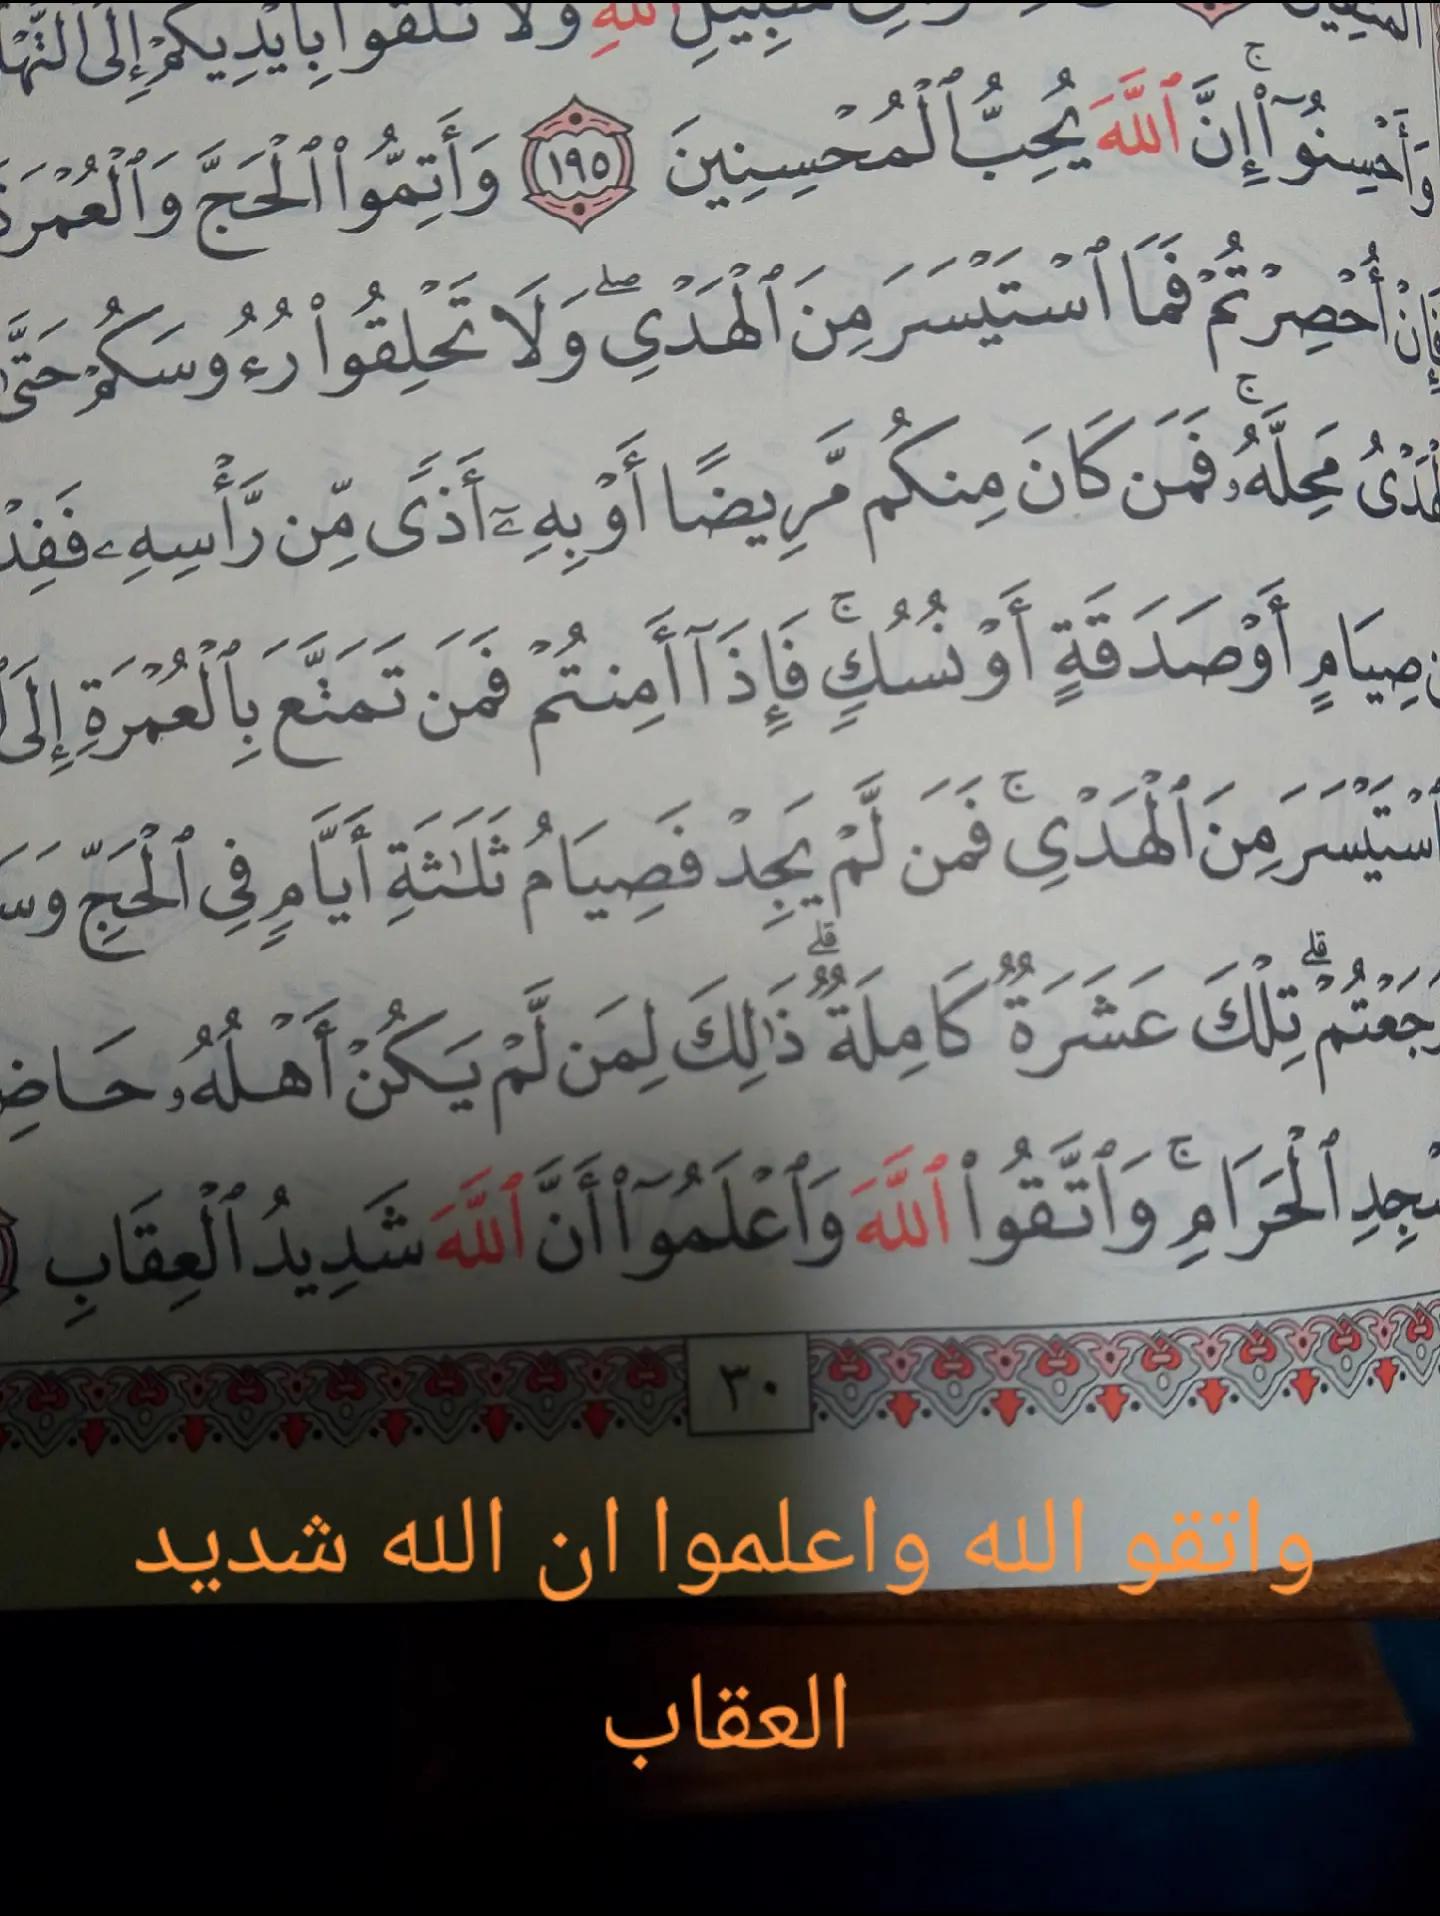 سَبِيلِ ٱللَّهِ وَلَا تُلْقُوا۟ بِأَيْدِيكُمْ إِلَى
وَأَحْسِنُوٓا۟ ۚ إِنَّ ٱللَّهَ يُحِبُّ ٱلْمُحْسِنِينَ ١٩٥ وَأَتِمُّوا۟ ٱلْحَجَّ وَٱلْعُمْرَةَ
فَإِنْ أُحْصِرْتُمْ فَمَا ٱسْتَيْسَرَ مِنَ ٱلْهَدْىِ ۖ وَلَا تَحْلِقُوا۟ رُءُوسَكُمْ حَتَّىٰ
مَحِلَّهُۥ ۚ فَمَن كَانَ مِنكُم مَّرِيضًا أَوْ بِهِۦٓ أَذًى مِّن رَّأْسِهِۦ
صِيَامٍ أَوْ صَدَقَةٍ أَوْ نُسُكٍ ۚ فَإِذَآ أَمِنتُمْ فَمَن تَمَتَّعَ بِٱلْعُمْرَةِ إِلَى
ٱسْتَيْسَرَ مِنَ ٱلْهَدْىِ ۚ فَمَن لَّمْ يَجِدْ فَصِيَامُ ثَلَـٰثَةِ أَيَّامٍ فِى ٱلْحَجِّ
رَجَعْتُمْ ۗ تِلْكَ عَشَرَةٌ كَامِلَةٌ ۗ ذَٰلِكَ لِمَن لَّمْ يَكُنْ أَهْلُهُۥ
ٱلْحَرَامِ ۚ وَٱتَّقُوا۟ ٱللَّهَ وَٱعْلَمُوٓا۟ أَنَّ ٱللَّهَ شَدِيدُ ٱلْعِقَابِ
٣٠
واتقو الله واعلموا ان الله شديد
العقاب